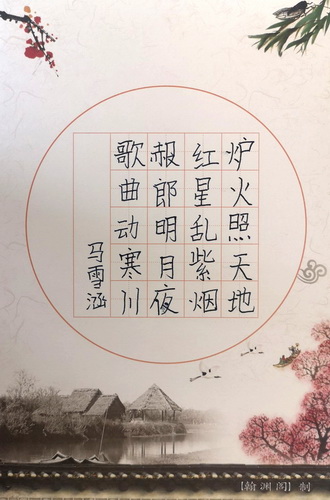 炉火照天地
红星乱紫烟
赧郎明月夜
歌曲动寒川
马雪涵
【翰渊阁】制